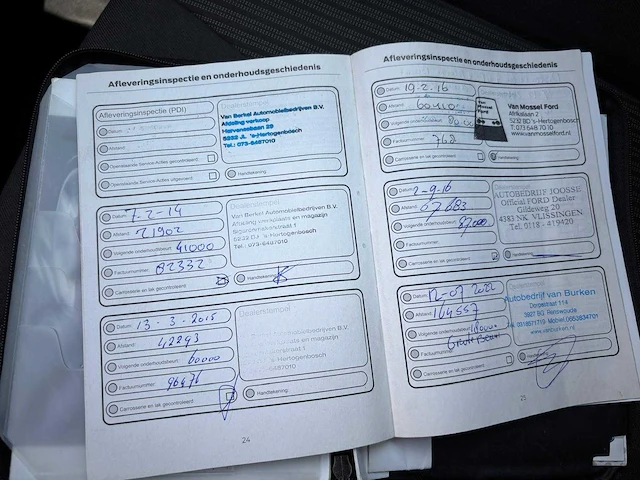 Afleveringsinspectie en onderhoudsgeschiedenis
Afleveringsinspectie (PDI)
Datum:
Afstand:
Openstaande Service-Acties gecontroleerd:
Openstaande Service-Acties uitgevoerd:
Dealerstempel
Van Berkel Automobielbedrijven B.V.
Afdeling verkoop
Hervensebaan 29
5232 JL 's-Hertogenbosch
Tel.: 073-6487010
Handtekening:
Datum: 7-2-14
Afstand: 21902
Volgende onderhoudsbeurt: 41000
Factuurnummer: 82332
Carrosserie en lak gecontroleerd:
Dealerstempel
Van Berkel Automobielbedrijven B.V.
Afdeling werkplaats en magazijn
5232 's-Hertogenbosch
Tel.: 073-6487010
Handtekening:
Datum: 13-3-2015
Afstand: 42293
Volgende onderhoudsbeurt: 60000
Factuurnummer: 96476
Carrosserie en lak gecontroleerd:
Dealerstempel
Automobielbedrijven B.V.
plaats en magazijn
Handtekening:
24
Afleveringsinspectie en onderhoudsgeschiedenis
Datum: 19-2-16
Afstand:
Volgende onderhoudsbeurt:
Factuurnummer: 762
Carrosserie en lak gecontroleerd:
Van Mossel Ford
Afrikalaan 2
5232 BD 's-Hertogenbosch
T: 073 648 7010
www.vanmosselford.nl
Handtekening:
Datum: 2-9-16
Afstand: 67683
Volgende onderhoudsbeurt: 87000
Factuurnummer:
Carrosserie en lak gecontroleerd:
AUTOBEDRIJF JOOSSE
Officiël FORD Dealer
Gildeweg 20
4383 NK VLISSINGEN
Tel. 0118 - 419420
Datum: 12-07 2022
Afstand: 164557
Volgende onderhoudsbeurt:
Factuurnummer: Grote Beurt
Carrosserie en lak gecontroleerd:
Autobedrijf van Burken
Dorpsstraat 114
3927 BG Renswoude
Tel. 0318571719 Mobiel 0653934701
www.vanburken.nl